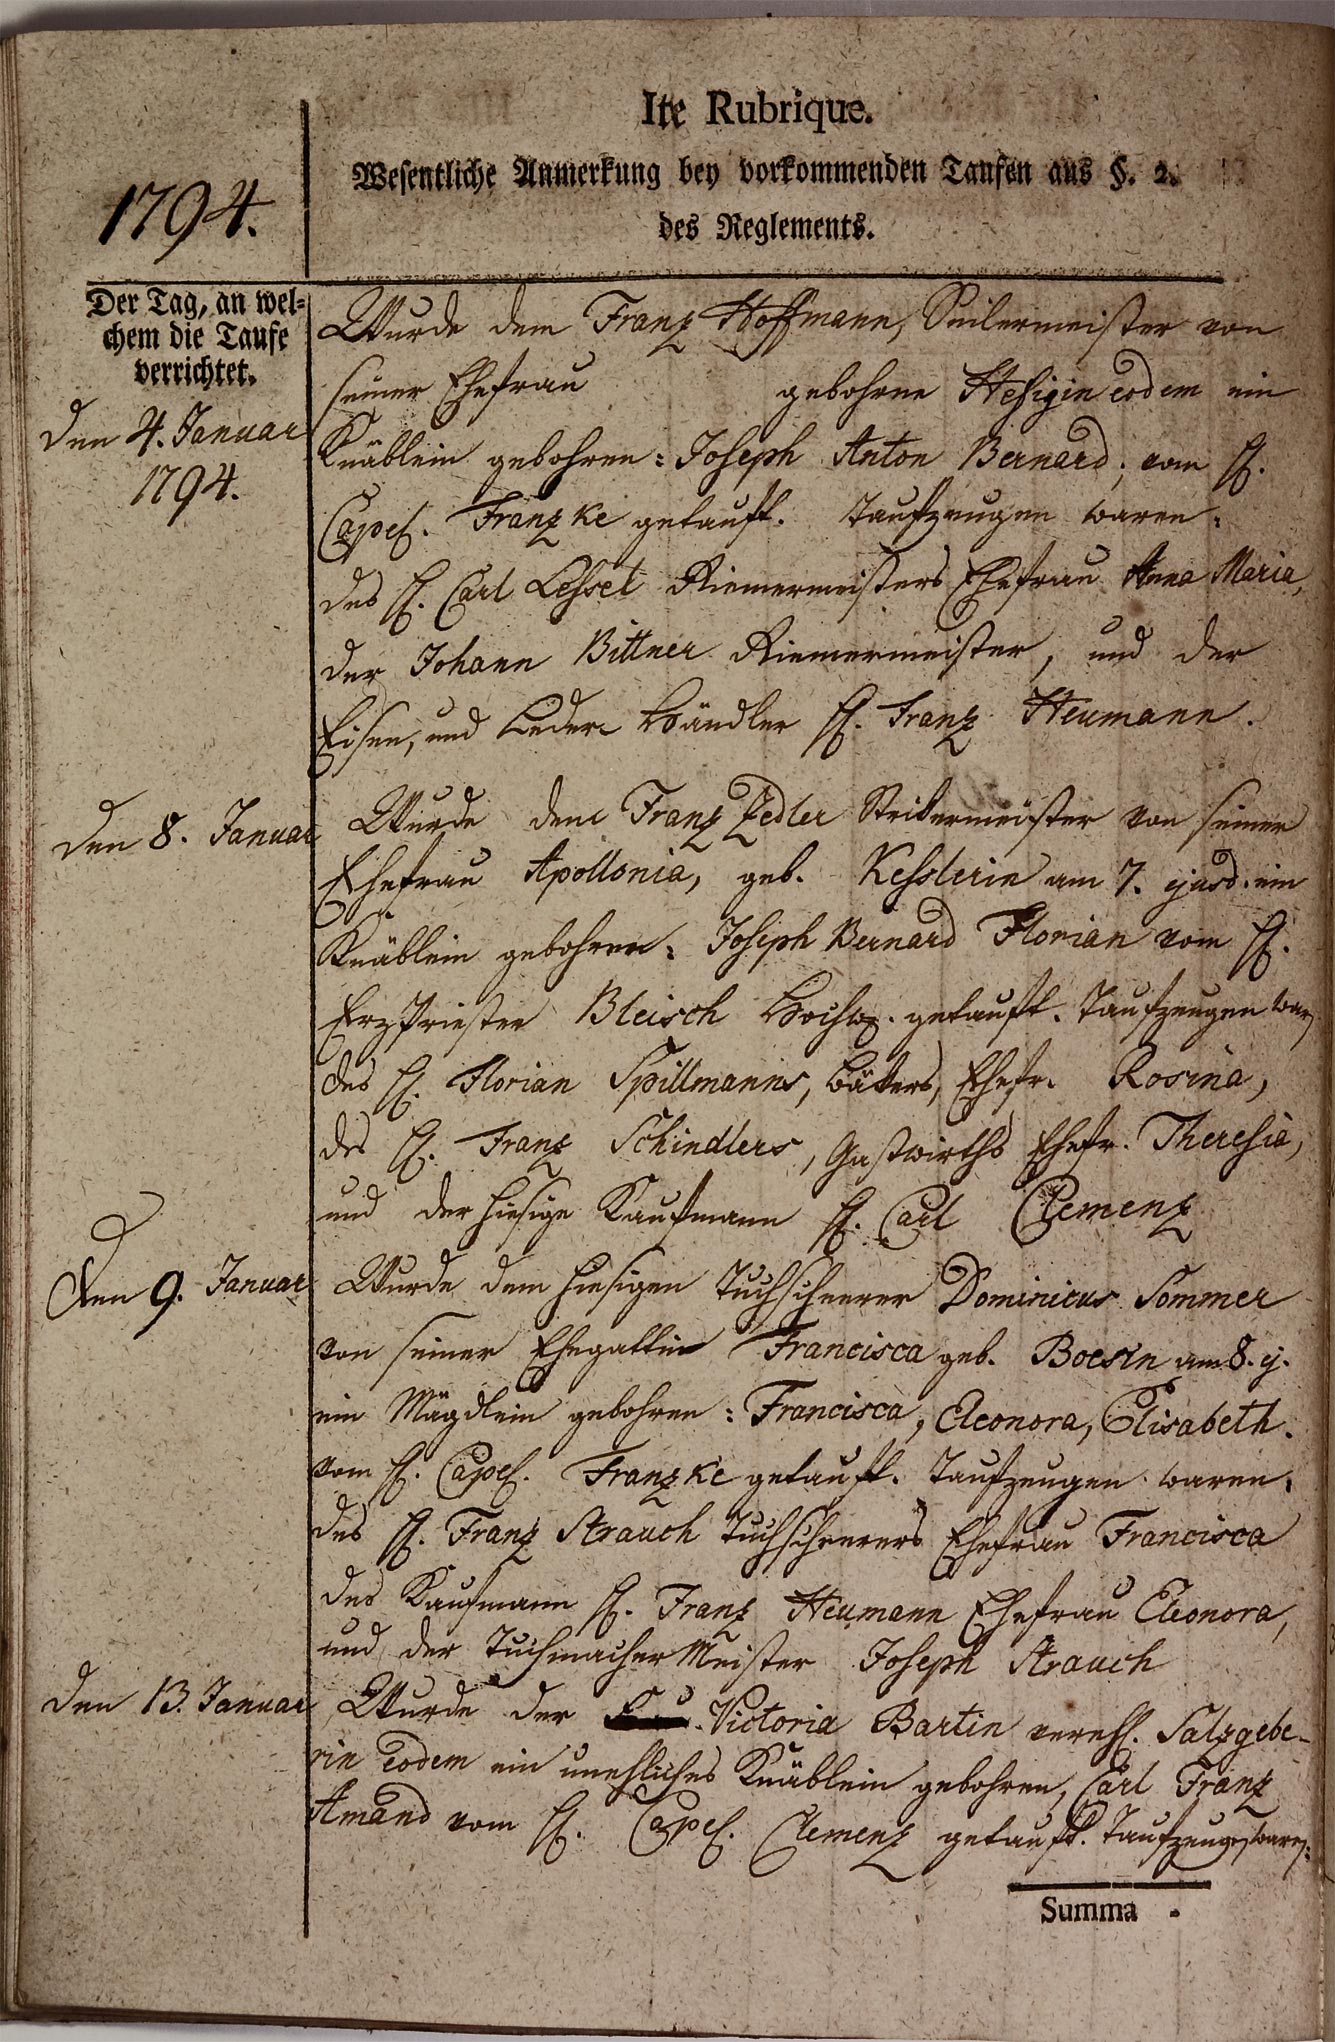 Ite Rubrique.
Wesentliche Anmerkung bey vorkommenden Taufen aus §. 2.
des Reglements.
1794.
Der Tag, an wel-
chem die Taufe
verrichtet.
Den 4. Januar
1794.
Wurde dem Franz Hoffmann, Seilermeister von
seiner Ehefrau gebohrne Hessigin eodem ein
Knäblein gebohren: Joseph Anton Bernard; vom H.
Capel. Franzke getauft. Taufzeugen waren:
des H. Carl Lessel Riemermeisters Ehefrau Anna Maria,
der Johann Bittner Riemermeister, und der
Eisen, und Leder Händler H. Franz Heumann.
Den 8. Januar
Wurde dem Franz Zedler Strikermeister von seiner
Ehefrau Apollonia, geb. Kesslerin am 7. ejusd. ein
Knäblein gebohren: Joseph Bernard Florian vom H.
Erzpriester Bleisch Hochw. getauft. Taufzeugen war.
des H. Florian Spillmanns, Ehefr. Rosina,
des H. Franz Schindlers, Gastwirths Ehefr. Theresia,
und der hiesige Kaufmann H. Carl Clemenz
Den 9. Januar
Wurde dem hiesigen Tuchscheerer Dominicus Sommer
von seiner Ehegattin Francisca geb. Boesin am 8. ej.
ein Mägdlein gebohren: Francisca, Eleonora, Elisabeth.
vom H. Capel. Franzke getauft. Taufzeugen waren:
des H. Franz Strauch Tuchscheerers Ehefrau Francisca
des Kaufmann H. Franz Heumann Ehefrau Eleonora,
und der Tuchmacher Meister Joseph Strauch
Den 13. Januar
Wurde der Victoria Bartin verehl. Salzgebe-
rin eodem ein unehliches Knäblein gebohren, Carl Franz
Amand vom H. Capel. Clemenz getauft. Taufzeugen waren:
Summa -